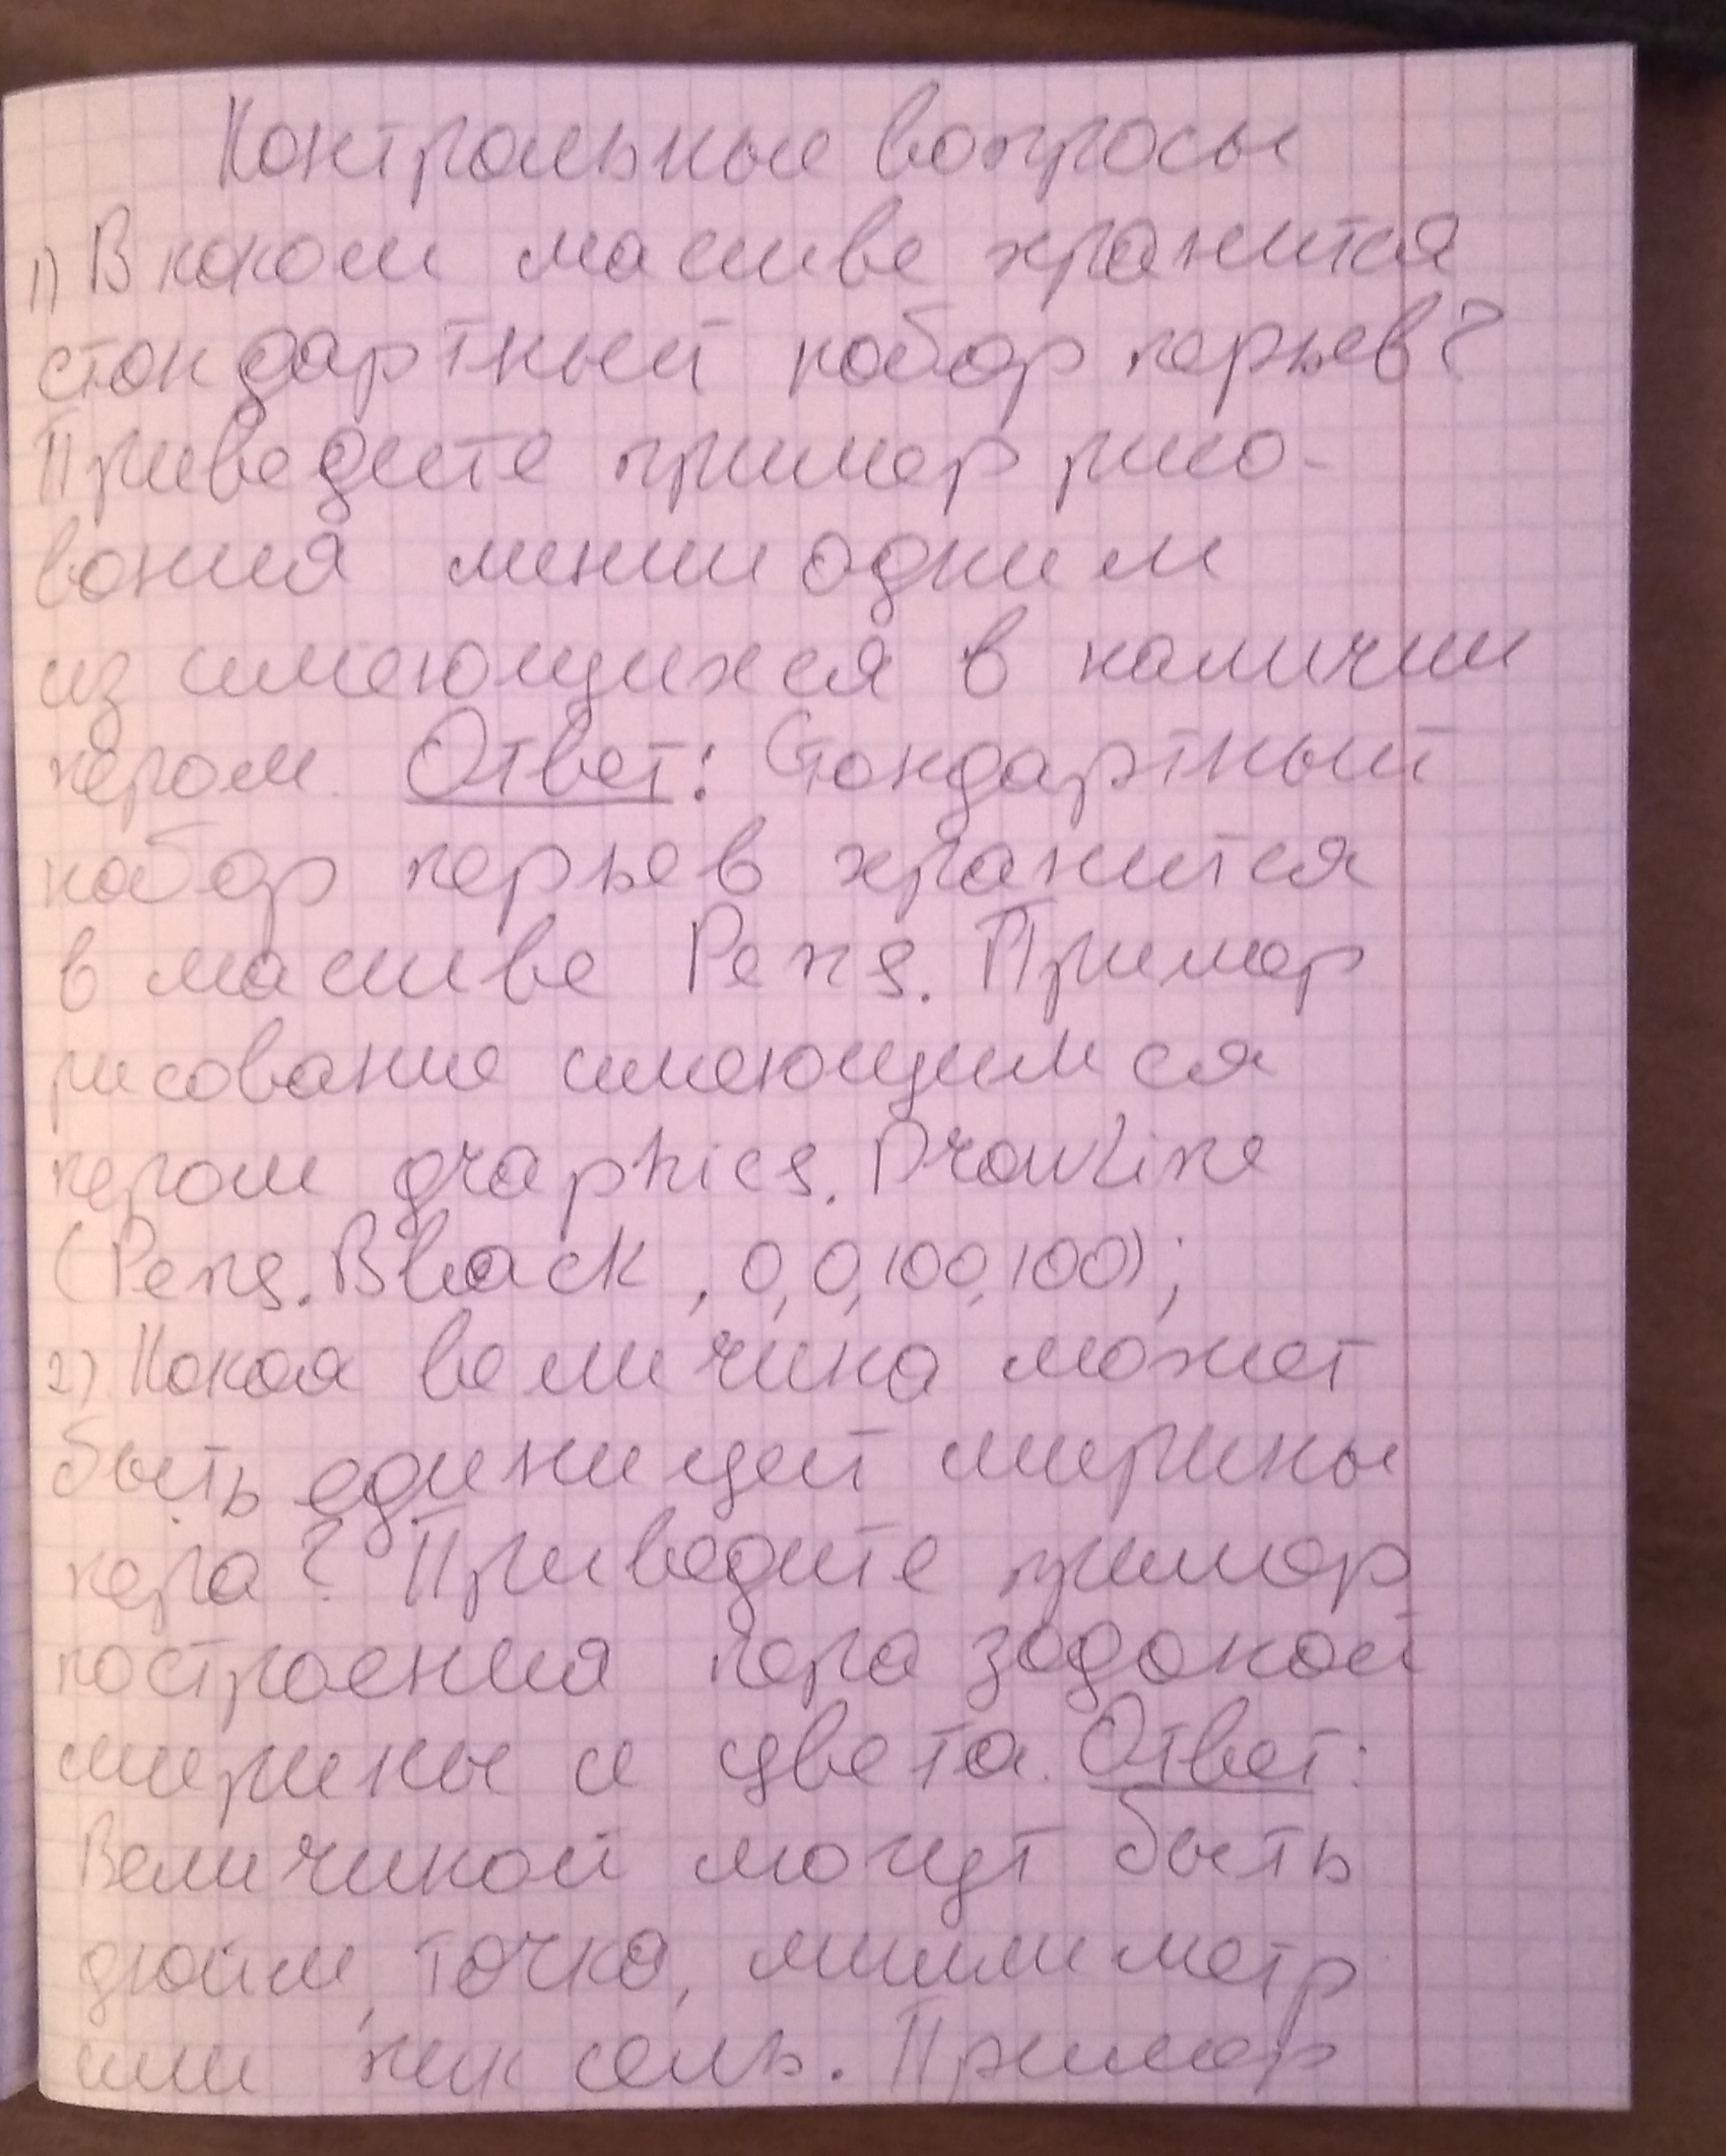 Контрольные вопросы
1) В каком масиве хранится
стандартный набор перьев?
Приведите пример рисо-
вания линии одним
из имеющихся в наличии
пером. Ответ: Стандартный
набор перьев хранится
в масиве Pens. Пример
рисование имеющимся
пером graphics. DrawLine
(Pens. Black, 0, 0, 100, 100);
2) Какая величина может
быть единицей ширины
пера? Приведите пример
построения пера заданой
ширины и цвета. Ответ:
Величиной могут быть
дюйм, точка, миллиметр
или пиксель. Пример